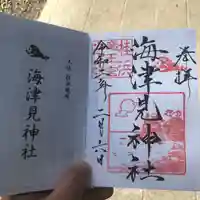 奉拝
海津見神社
桂浜
令和二年二月六日
海津見神社